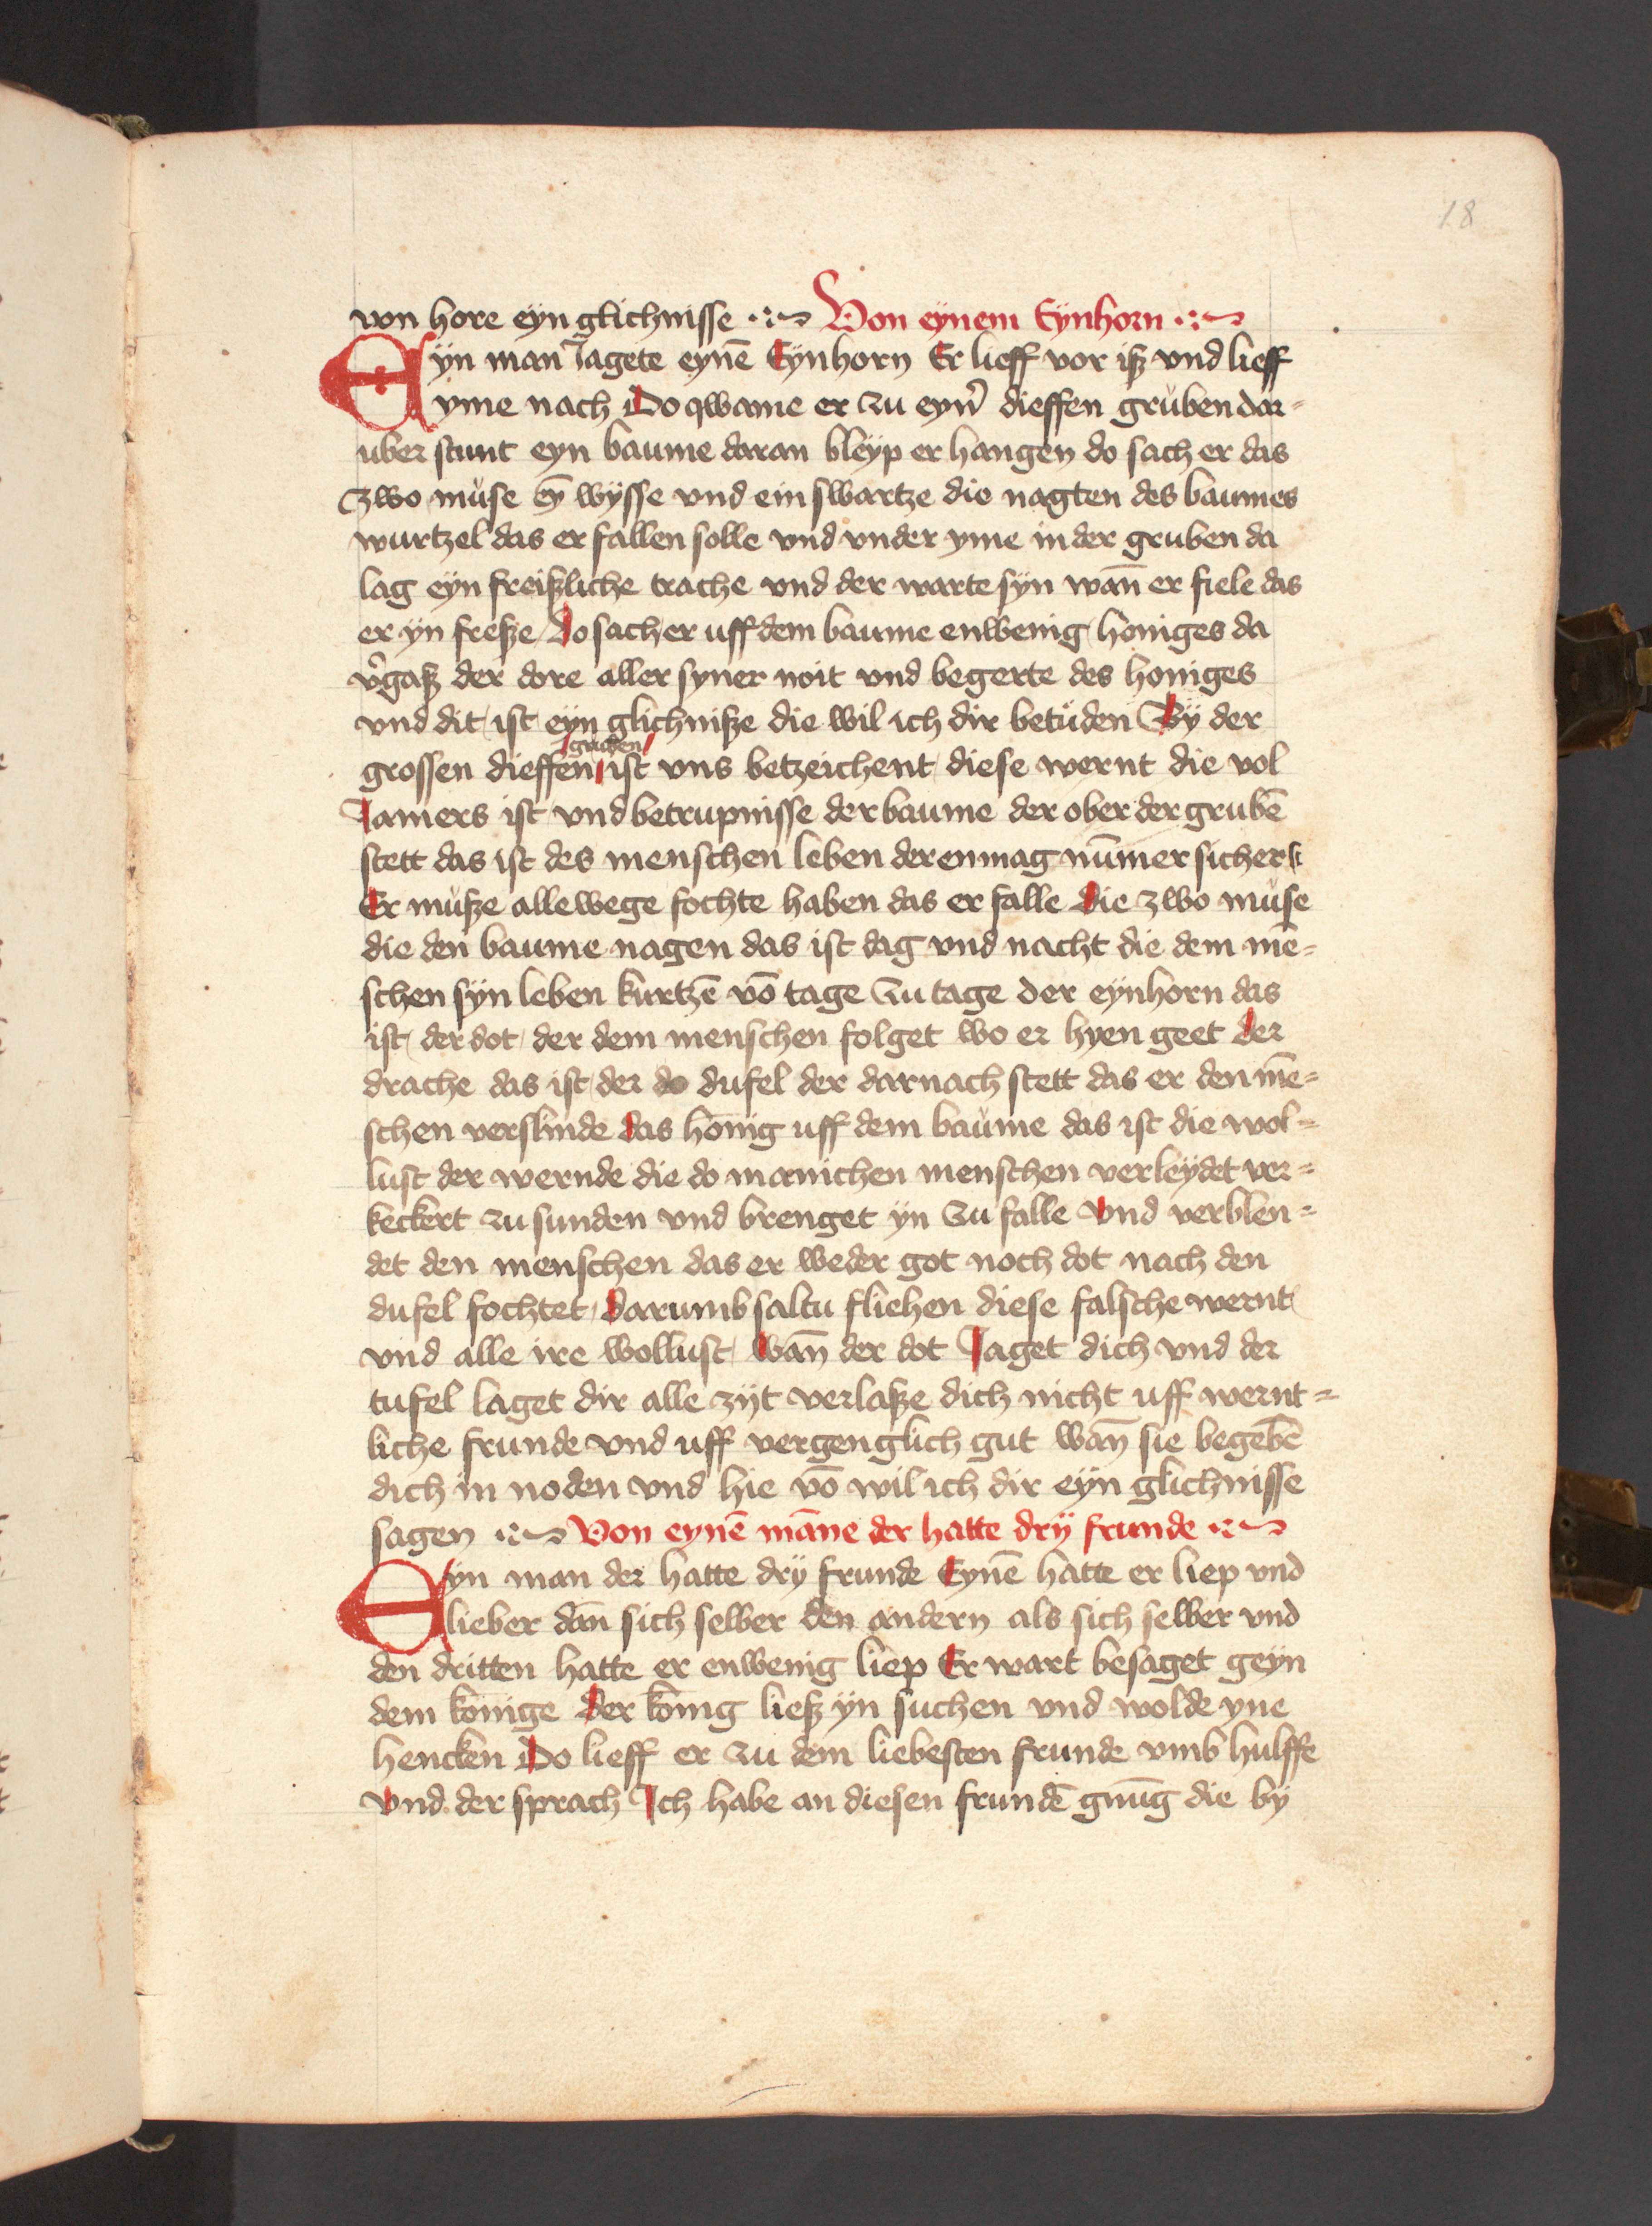 18
von hore eyn glichnisse Von eynem Eynhorn
Eyn man Jagete eynē Eynhorn Er lieff vor iß vnd lieff
yme nach Do qwame er zu eyn̉ dieffen grůben dar=
uber stunt eyn baume daran bleyp er hangen do sach er das
zwo můse eȳ wysse vnd ein swartze die nagten des baumes
wurtzel das er fallen solle vnd vnder yme in der gruben da
lag eyn freißliche trache vnd der warte syn wan̄ er fiele das
er yn freße do sach er uff dem baume enwenig honiges da
v̉gaß der dore aller syner noit vnd begerte des honiges
vnd dit ist eyn glichniße die wil ich dir betůden By der
gruben
grossen dieffen ist vns betzeichent diese wernt die vol
Jamers ist vnd betrupnisse der baume der ober der grubē
stett das ist des menschen leben der enmag nūmer sicher
Er můße allewege fochte haben das er falle die zwo můse
die den baume nagen das ist dag vnd nacht die dem mē=
schen syn leben kurtzē vō tage zu tage der eynhorn das
ist der dot der dem menschen folget wo er hyen geet der
drache das ist der do dufel der darnach stett das er den mē=
schen verslinde das honig uff dem baůme das ist die wol=
lust der wernde die do manichen menschen verleydet ver=
keckert zu sunden vnd brenget yn zu falle vnd verblen=
det den menschen das er weder got noch dot nach den
dufel fochtet darumb saltu fliehen diese falsche wernt
vnd alle ire wollust wan̄ der dot Jaget dich vnd der
tufel laget dir alle zyt verlaße dich nicht uff wernt=
liche frunde vnd uff vergenglich gut wan̄ sie begebē
dich in noden vnd hie vō wil ich dir eyn glichnisse
sagen Von eynē māne der hatte dry frunde
Eyn man der hatte dry frunde Eynē hatte er liep vnd
lieber dan̄ sich selber den andern als sich selber vnd
den dritten hatte er enwenig liep Er wart besaget geyn
dem konige der konig ließ yn suchen vnd wolde yne
hencken Do lieff er zu dem liebesten frunde vmb hulffe
vnd der sprach Ich habe an diesen frundē gnūg die by